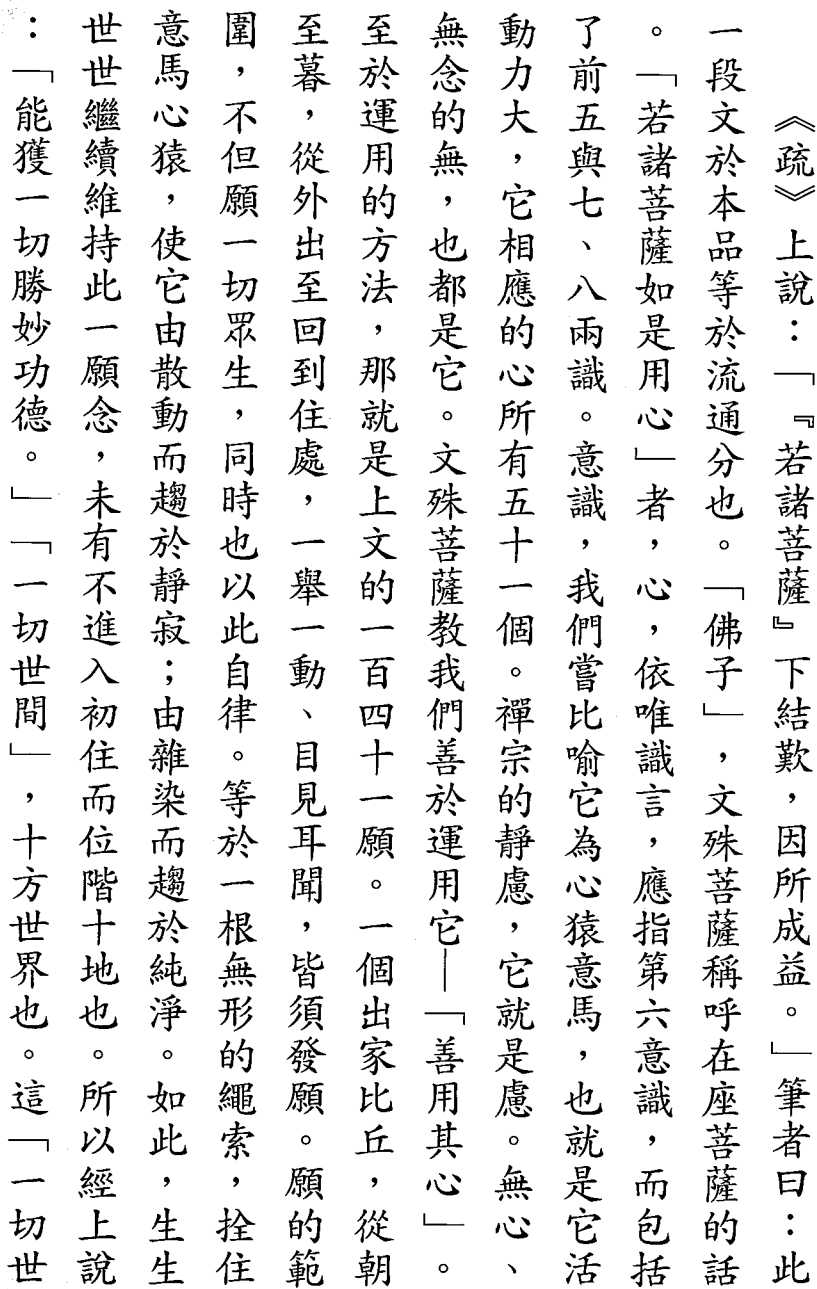 《疏》上說：「『若諸菩薩』下結歎，因所成益。」筆者曰：此
一段文於本品等於流通分也。「佛子」，文殊菩薩稱呼在座菩薩的話
。「若諸菩薩如是用心」者，心，依唯識言，應指第六意識，而包括
了前五與七、八兩識。意識，我們嘗比喻它為心猿意馬，也就是它活
動力大，它相應的心所有五十一個。禪宗的靜慮，它就是慮。無心、
無念的無，也都是它。文殊菩薩教我們善於運用它—「善用其心」。
至於運用的方法，那就是上文的一百四十一願。一個出家比丘，從朝
至暮，從外出至回到住處，一舉一動、目見耳聞，皆須發願。願的範
圍，不但願一切眾生，同時也以此自律。等於一根無形的繩索，拴住
意馬心猿，使它由散動而趨於靜寂；由雜染而趨於純淨。如此，生生
世世繼續維持此一願念，未有不進入初住而位階十地也。所以經上說
：「能獲一切勝妙功德。」「一切世間」，十方世界也。這「一切世